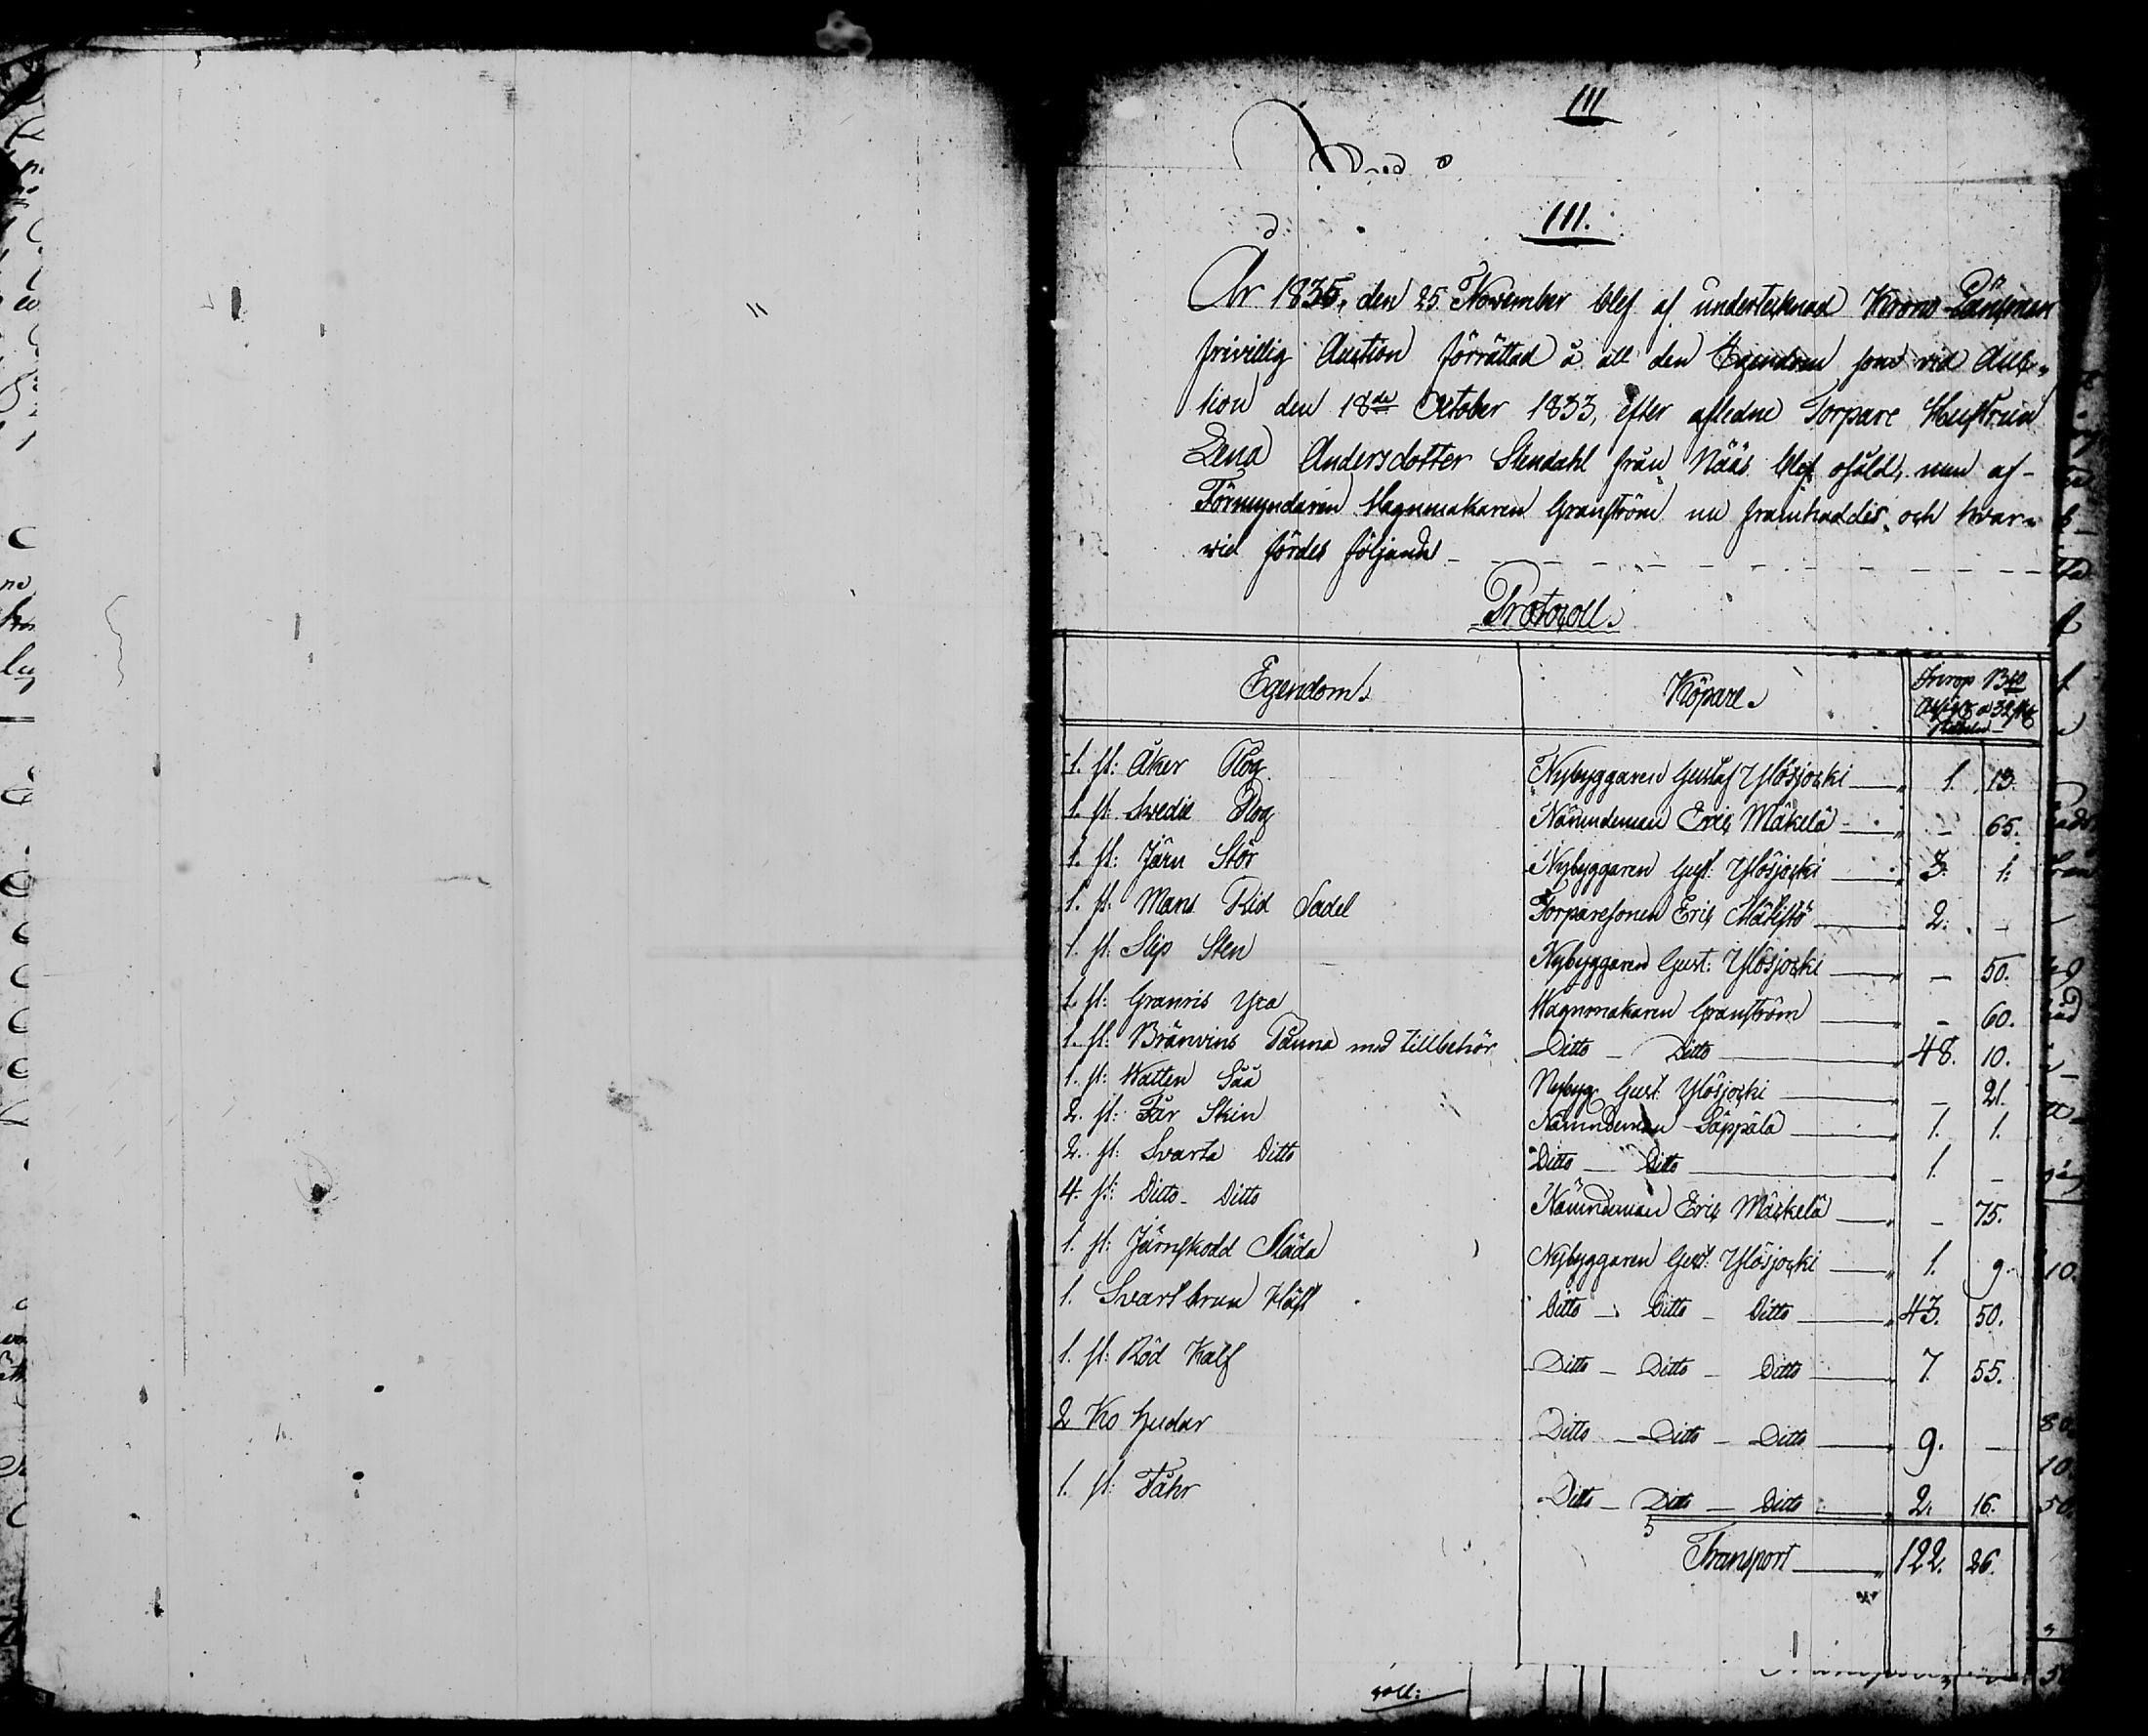 111
111.
År 1835, den 25 November blef af undertecknad Krono-Länsman
frivillig Auction förrättad å all den Egendom som vid Auc-
tion den 18de October 1833, efter afledne Torpare Hustrun
Lena Andersdotter Stendahl från Nääs blef osåld, men af-
Förmyndaren Wagnmakaren Granström nu framhaddes, och hvar-
vid fördes följande
Protocoll.
Egendom. Köpare. Inrop B:co
1. st: Åker Plog Nybyggaren Gustaf Ylösjocki 1. 13.
1. st: Svedie Plog Nämndeman Eric Mäkelä - 65.
1. st: Järn Stör Nybyggaren Gust: Ylösjocki 3. 1.
1. st: Mans Rid Sadel Torparesonen Eric 2. -
1. st: Slip Sten Nybyggaren Gust: Ylösjocki - 50.
1. st: Granris Yxa Wagnmakaren Granström - 60.
1. st: Bränvins Panna med tillbehör Ditto - Ditto 48. 10.
1. st: Watten Såå Nybyg Gust: Ylösjocki - 21.
2. st: Får Skin Nämndeman Säppälä 1. 1.
2. st: Svarta Ditto Ditto - Ditto 1. -
4. st: Ditto - Ditto Nämndeman Eric Mäckelä - 75.
1. st: Järnskodd Släda Nybyggaren Gust: Ylösjocki 1. 9.
1. Svartbrun Häst Ditto - Ditto - Ditto 43. 50.
1. st: Röd Kalf Ditto - Ditto - Ditto 7. 55.
2 Ko hudar Ditto - Ditto - Ditto 9. -
1. st: Fåhr Ditto - Ditto - Ditto 2. 16.
Transport 122. 26.